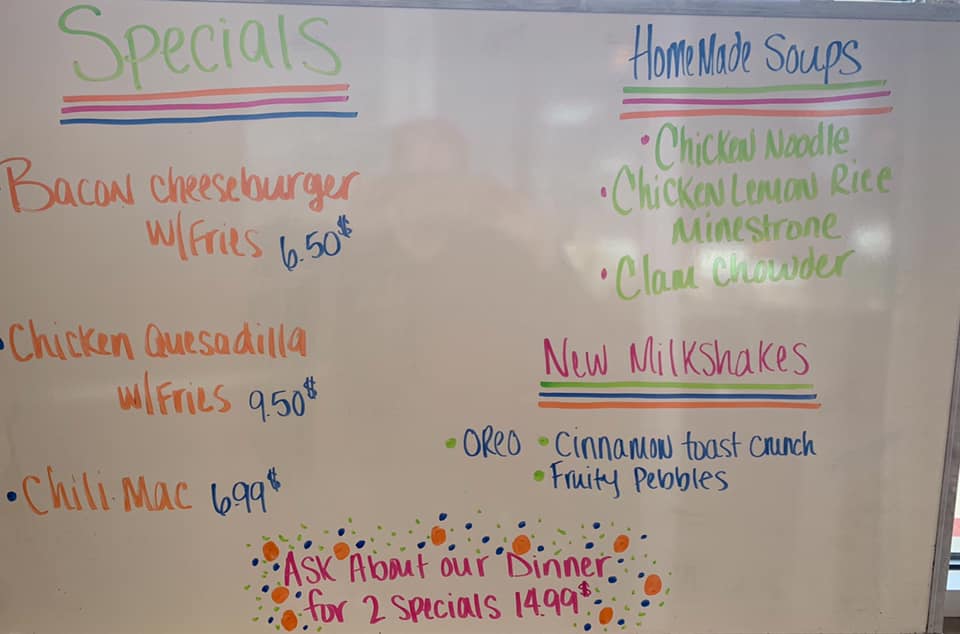 Specials
Bacon cheeseburger
w/Fries 6.50$
• Chicken Quesadilla
w/Fries 9.50$
• Chili Mac 6.99$
HomeMade Soups
• Chicken Noodle
• Chicken Lemon Rice
Minestrone
• Clam Chowder
New Milkshakes
• OREO • Cinnamon toast crunch
• Fruity Pebbles
Ask About our Dinner
for 2 specials 14.99$